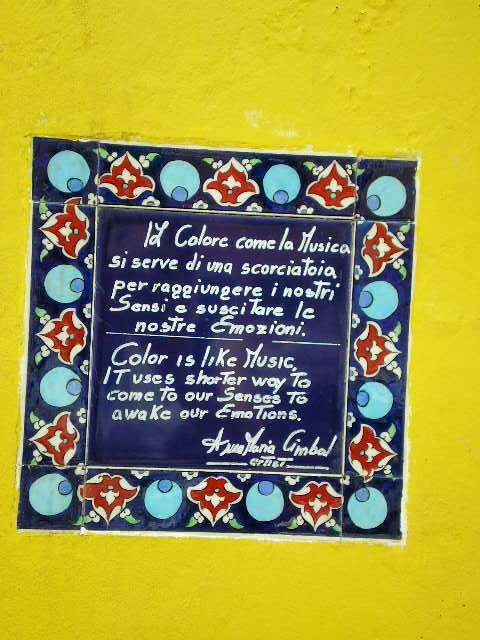 Il Colore come la Musica
si serve di una scorciatoia
per raggiungere i nostri
Sensi e suscitare le
nostre Emozioni.
Color is like Music,
IT uses shorter way To
come to our Senses To
awake our EmoTions.
AnnaMaria Cimbal
artist